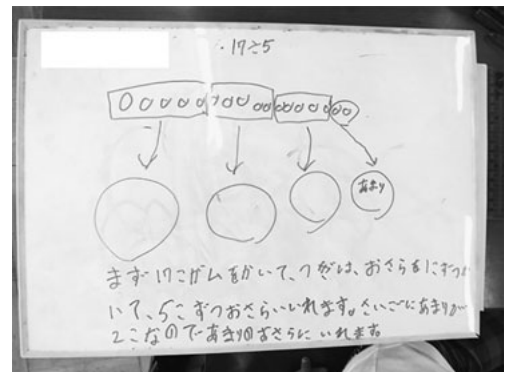 ・17÷5
あまり
まず17こガムをかいて、つぎは、おさらを1こずつか
いて、5こずつおさらいいれます。さいごにあまりが
2こなのであまりのおさらに いれます